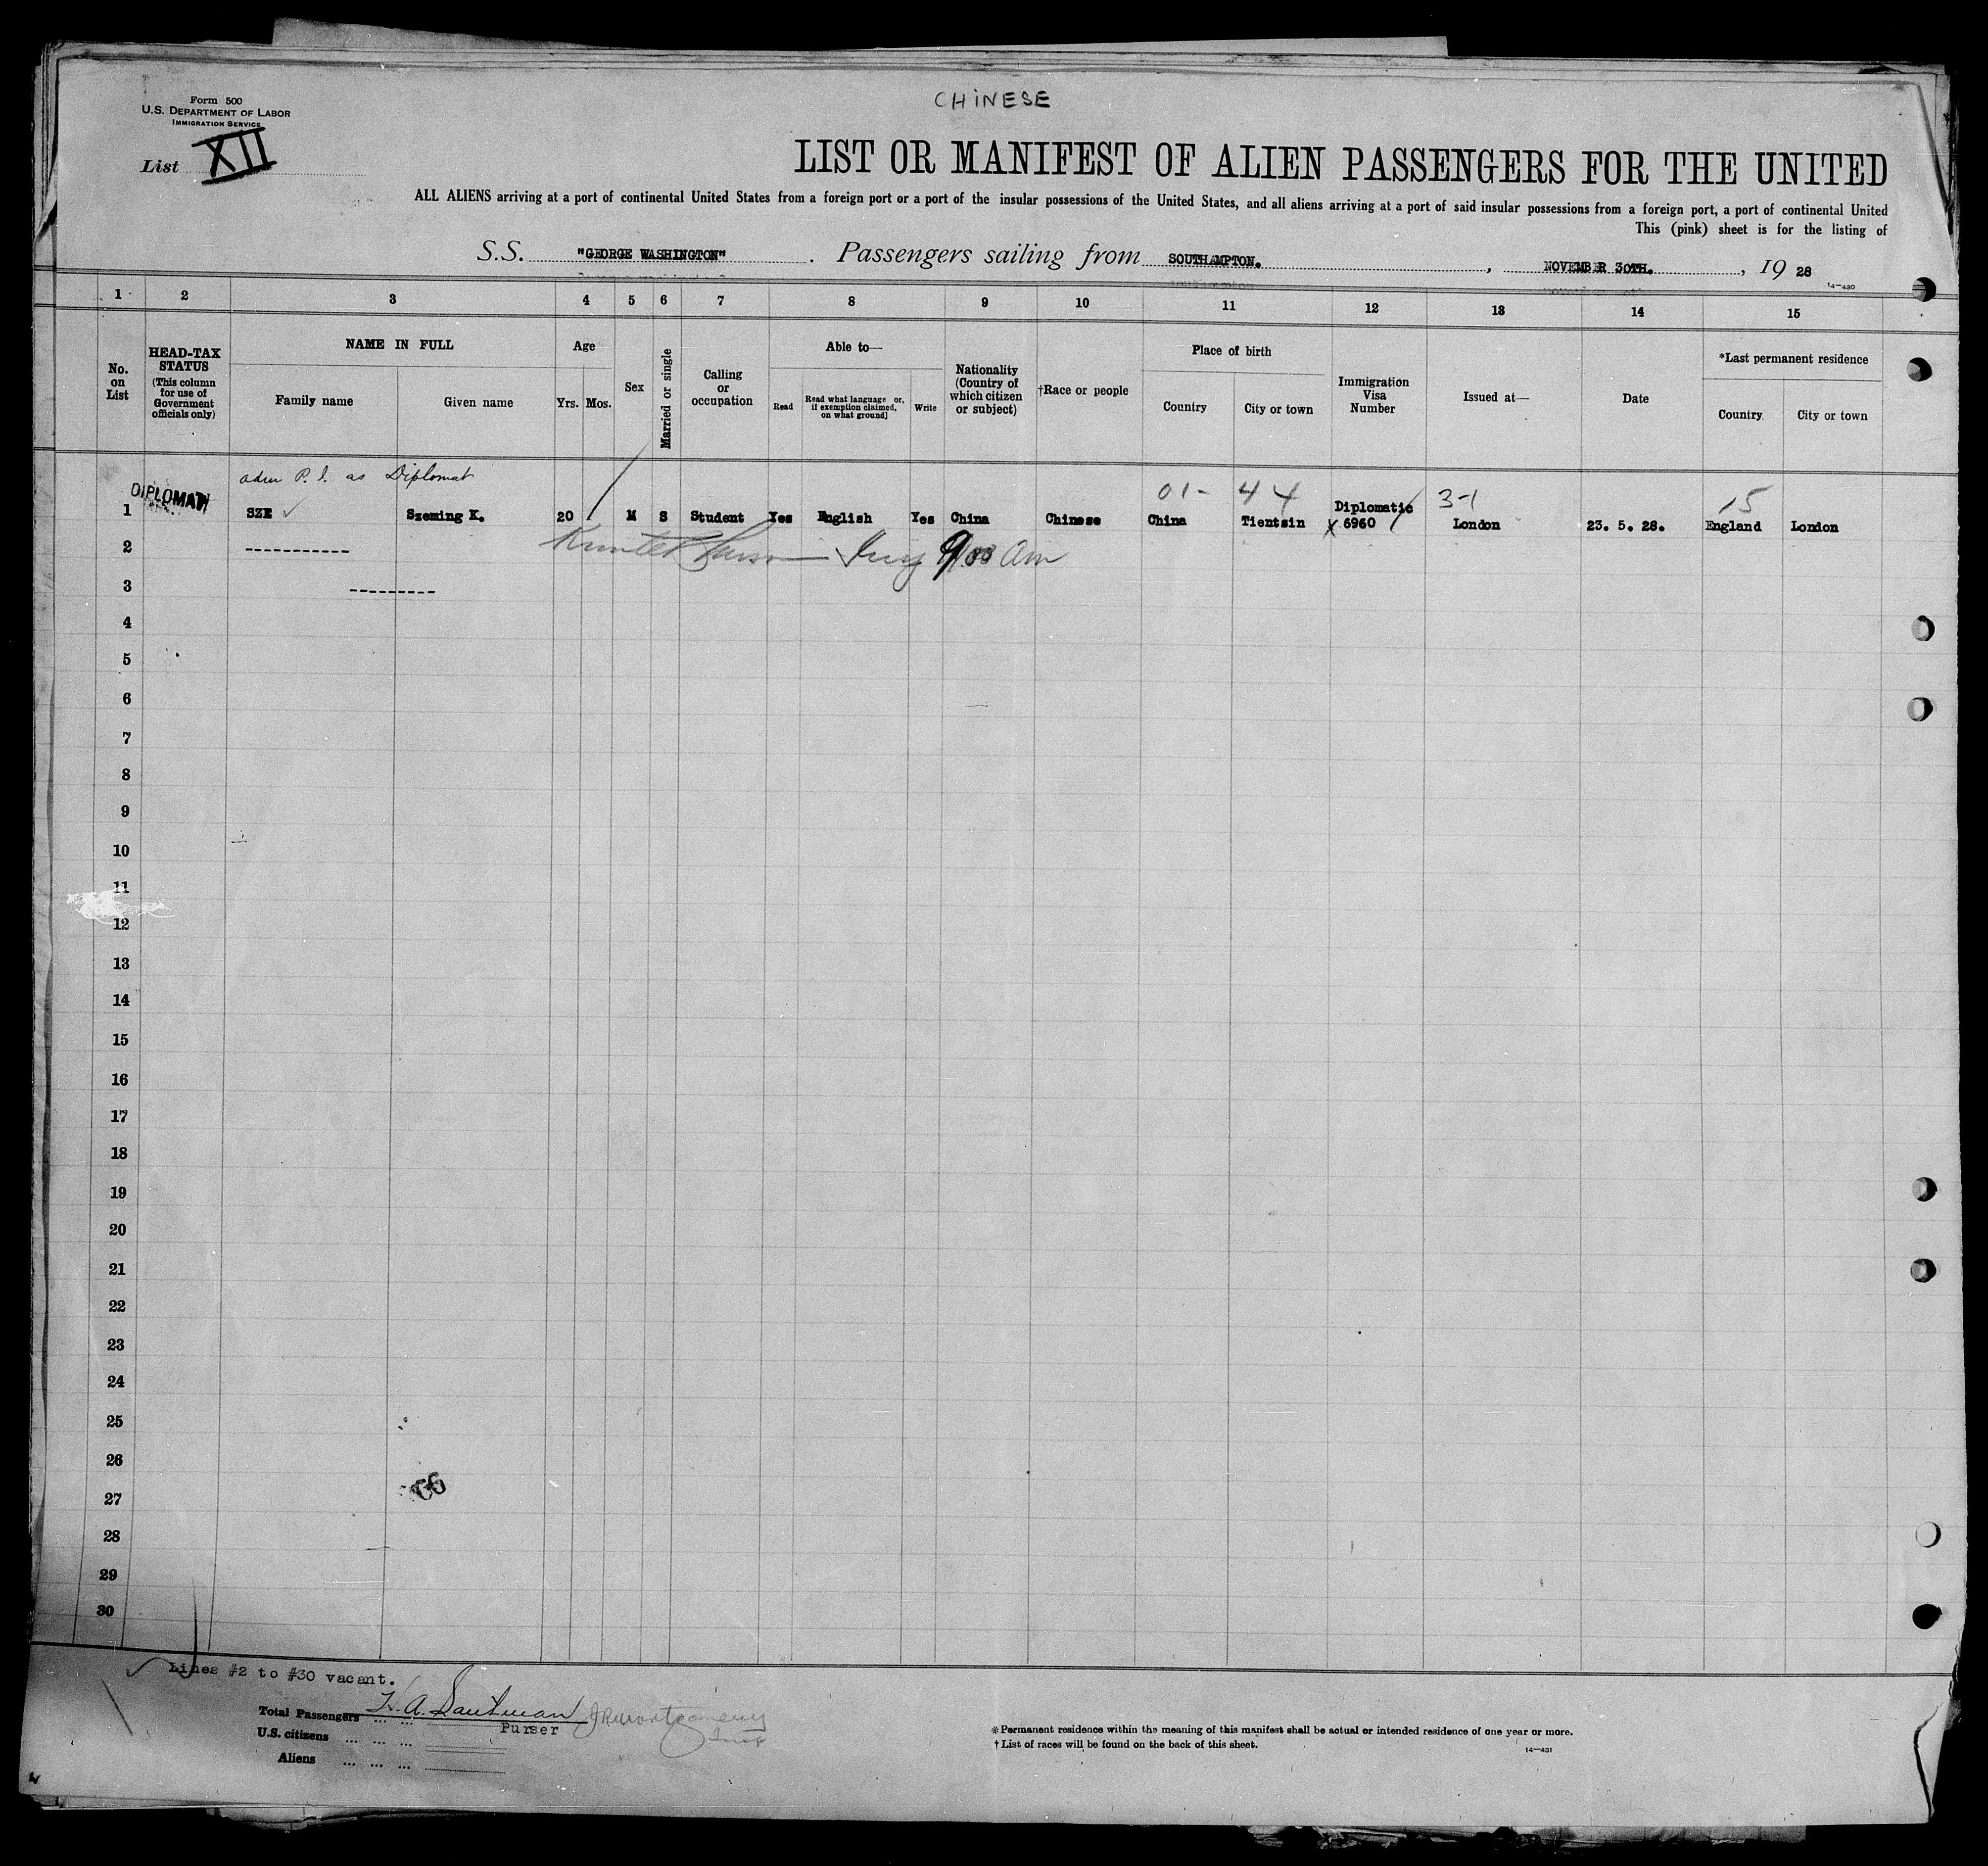 CHINESE
Form 500
U.S. DEPARTMENT OF LABOR
IMMIGRATION SERVICE
List XII
LIST OR MANIFEST OF ALIEN PASSENGERS FOR THE UNITED
ALL ALIENS arriving at a port of continental United States from a foreign port or a port of the insular possessions of the United States, and all aliens arriving at a port of said insular possessions from a foreign port, a port of continental United
This (pink) sheet is for the listing of
S.S. "GEORGE WASHINGTON" . Passengers sailing from SOUTHAMPTON. , NOVEMBER 30TH. , 19 28
14-430
1 2 3 4 5 6 7 8 9 10 11 12 13 14 15
No. on List
HEAD-TAX STATUS (This column for use of Government officials only)
NAME IN FULL
Family name Given name
Age
Yrs. Mos.
Sex
Married or single
Calling or occupation
Able to—
Read
Read what language or, if exemption claimed, on what ground]
Write
Nationality (Country of which citizen or subject)
†Race or people
Place of birth
Country City or town
Immigration Visa Number
Issued at—
Date
*Last permanent residence
Country City or town
P. I. as Diplomat
01- 44 3-1 15
DIPLOMAT
1 SZE ✓ Szeming K. 20 M S Student Yes English Yes China Chinese China Tientsin Diplomatic X 6960 London 23. 5. 28. England London
2 ----------- 9 00 am
3 ---------
4
5
6
7
8
9
10
11
12
13
14
15
16
17
18
19
20
21
22
23
24
25
26
27
28
29
30
Lines #2 to #30 vacant.
Total Passengers ... ...
Purser
U.S. citizens ... ... ...
Aliens ... ... ...
*Permanent residence within the meaning of this manifest shall be actual or intended residence of one year or more.
† List of races will be found on the back of this sheet.
14-431